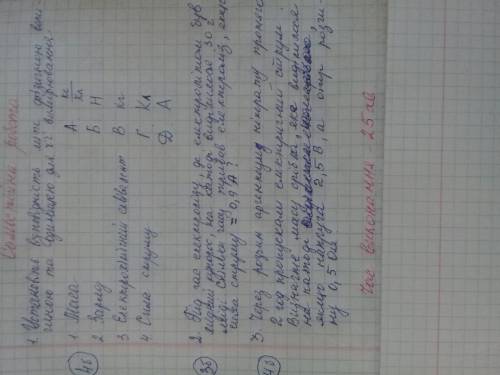 Самостійна робота
1. Установіть відповідність між фізичною вели-
чиною та одиницею для її вимірювання:
1 Маса А кг/Кл
2 Заряд Б Н
3 Електрохімічний еквівалент В кг
4 Сила струму Г Кл
Д А
4б
2. Під час електролізу, де електролітом був
мідний купорос, на катоді виділилося 30 г
міді. Скільки часу тривав електроліз, якщо
сила струму = 0,9 А?
3б
3. Через розчин аргентум нітрату протягом
2 год пропускали електричний струм.
Визначте масу срібла, яке виділилося
на катоді,
якщо напруга 2,5 В, а опір розчи-
ну 0,5 Ом.
4б
Час виконання - 25 хв